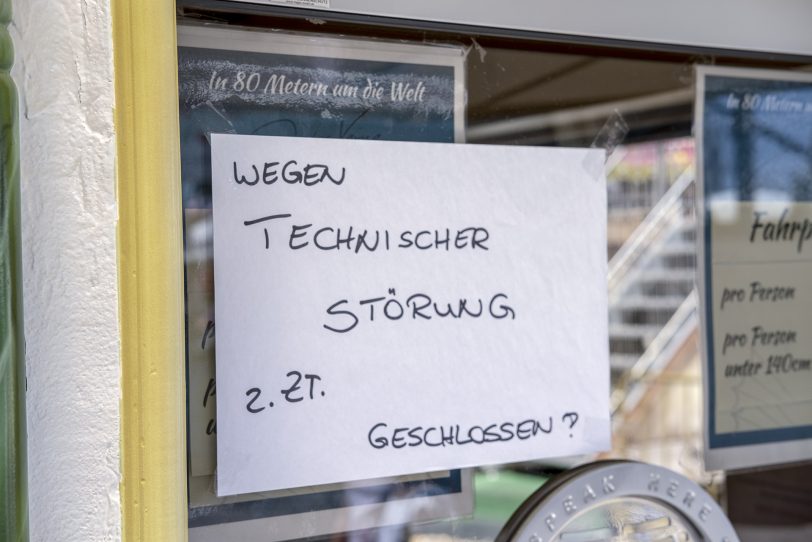 In 80 Metern um die Welt
WEGEN
TECHNISCHER
STÖRUNG
z. ZT.
GESCHLOSSEN?
In 80 Metern
Fahrp
pro Person
pro Person
unter 140cm
SPEAK HERE